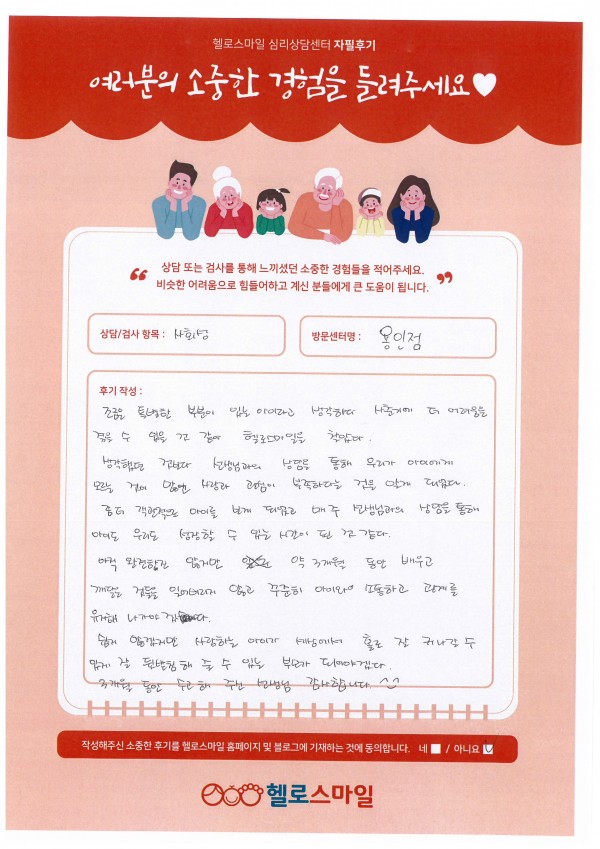 헬로스마일 심리상담센터 자필후기
여러분의 소중한 경험을 들려주세요
“ 상담 또는 검사를 통해 느끼셨던 소중한 경험들을 적어주세요.
비슷한 어려움으로 힘들어하고 계신 분들에게 큰 도움이 됩니다. ”
상담/검사 항목 : 사회성
방문센터명 : 용인점
후기 작성 :
조금은 특별한 부분이 있는 아이라고 생각하다 사춘기에 더 어려움을
겪을 수 있을 것 같아 헬로스마일을 찾았다.
생각했던 것보다 선생님과의 상담을 통해 우리가 아이에게
모르는 것이 많았던 사랑과 관심이 부족하다는 것을 알게 되었다.
좀더 객관적으로 아이를 보게 되었고 매주 선생님과의 상담을 통해
아이도 우리도 성장할 수 있는 시간이 된 것 같다.
아직 완전하진 않지만 약 3개월 동안 배우고
깨달은 것들을 잊어버리지 않고 꾸준히 아이와 소통하고 관계를
유지해 나가야
쉽게 않겠지만 사랑하는 아이가 세상에서 홀로 잘 커나갈 수
있게 잘 뒷받침해 줄 수 있는 부모가 되어야겠다.
3개월 동안 수고해 주신 선생님 감사합니다. ^^
작성해주신 소중한 후기를 헬로스마일 홈페이지 및 블로그에 기재하는 것에 동의합니다. 네 / 아니요
헬로스마일